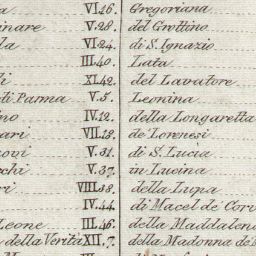 a VI.26. Gregoriana
inare V.28. del Grottino
la VI.24. di S. Ignazio
III.40. Lata
li XI.42. del Lavatore
di Parma V.5. Leonina
no IV.12. della Longaretta
ari VII.13. de' Lorenesi
uovi V.31. di S. Lucia
cchi V.37. in Lucina
ri VIII.38. della Lupa
IV.34. di Macel de' Corv
Leone III.46. della Maddalena
della Verità XII.7. della Madonna de'